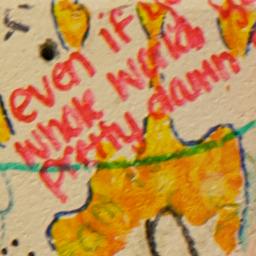 even if yo
whole world
pretty damn